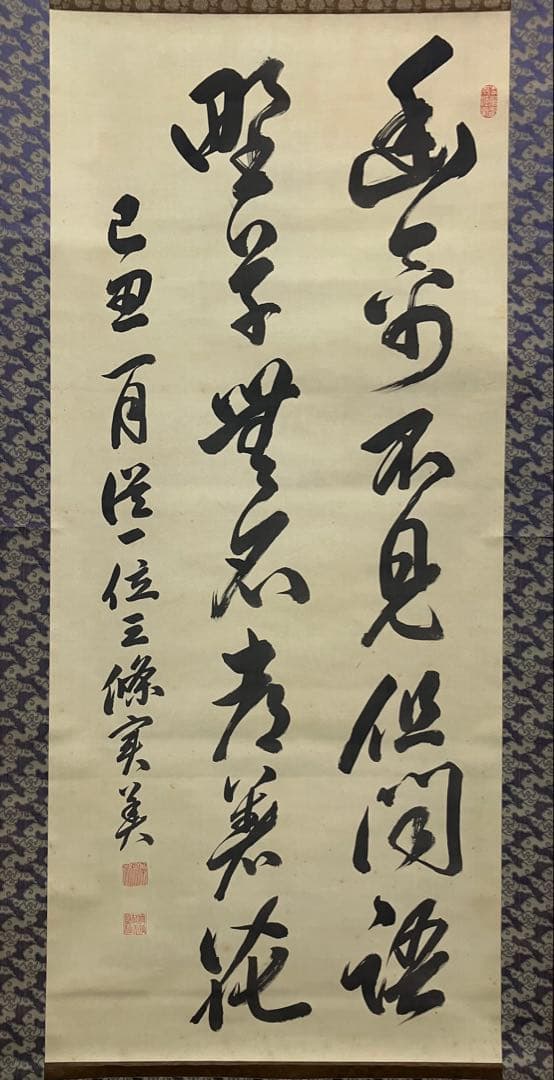 幽禽不見但聞語
野草無名都著花
己丑一月從一位三條實美